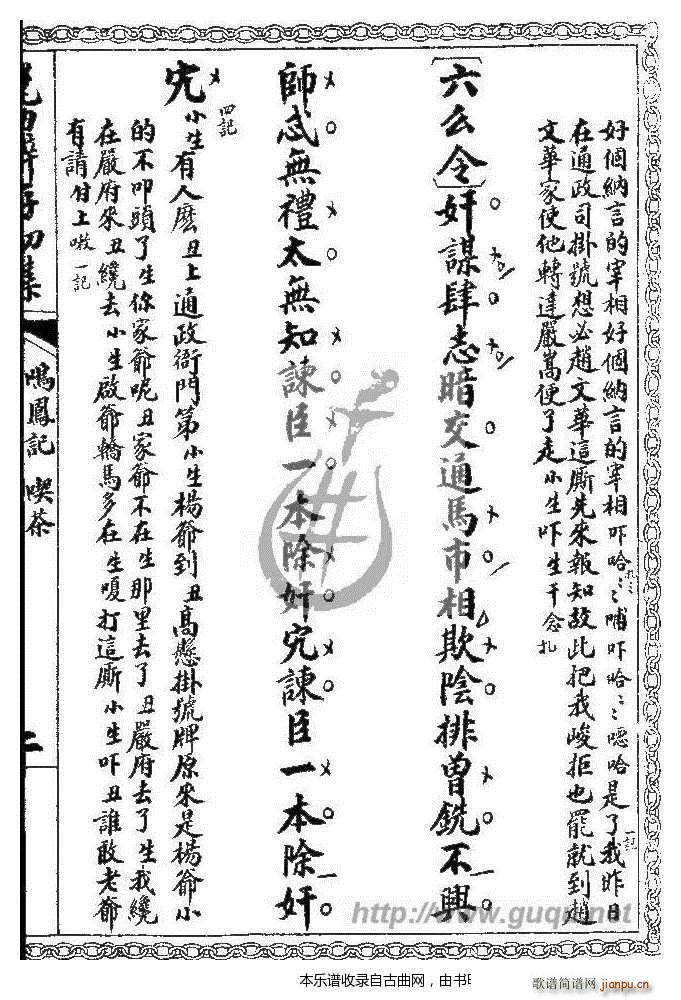 好個納言的宰相好個納言的宰相吓哈〻哺吓哈〻〻噁哈是了我昨日
在通政司掛號想必趙文華這厮先來報知故此把我峻拒也罷就到趙
文華家使他轉達嚴嵩便了走小生吓生干念扎
〔六么令〕奸謀肆志暗交通馬市相欺陰排曾銑不興
師忒無禮太無知諫臣一本除奸宄諫臣一本除奸
宄小生有人麽丑上通政衙門第小生楊爺到丑高懸掛號牌原來是楊爺小
四記
的不叩頭了生你家爺呢丑家爺不在生那里去了丑嚴府去了生我纔
在嚴府來丑纔去小生啟爺轎馬多在生嗄打這厮小生吓丑誰敢老爺
有請付上嗷一記
鳴鳳記 喫茶
二
http://www.guqu.net
本乐谱收录自古曲网，由书
歌谱简谱网
jianpu.cn